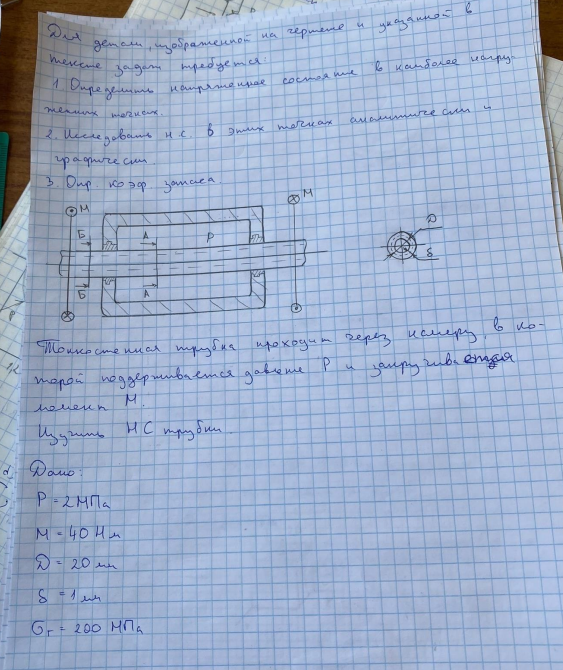 Для детали, изображенной на чертеже и указанной в
тексте задач требуется:
1. Определить напряженное состояние в наиболее нагру-
женных точках.
2. Исследовать н.с. в этих точках аналитически и
графически.
3. Опр. коэф. запаса.
М
М
Б
А
Р
Б
А
D
δ
Тонкостенная трубка проходит через камеру, в ко-
торой поддерживается давление Р и закручивается
момент М.
Изучить НС трубки.
Дано:
Р = 2 МПа
М = 40 Нм
D = 20 мм
δ = 1 мм
σт = 200 МПа